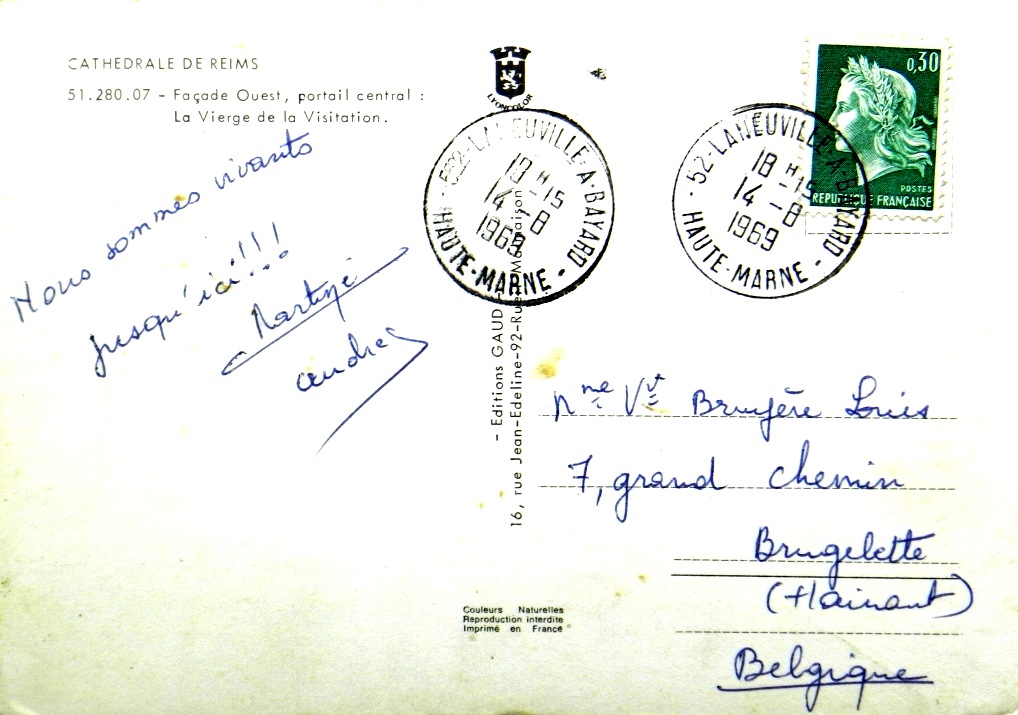 CATHEDRALE DE REIMS
51.280.07 - Façade Ouest, portail central :
La Vierge de la Visitation.
Nous sommes vivants
jusqu'ici!!!
Martine
andrée
LYONCOLOR
52-LANEUVILLE-A-BAYARD
18 H -15
14 -8
1969
HAUTE-MARNE
52-LANEUVILLE-A-BAYARD
18 H -15
14 -8
1969
HAUTE-MARNE
0,30
POSTES
REPUBLIQUE FRANÇAISE
- Editions GAUD
16, rue Jean-Edeline-92-Rueil-Malmaison
Mme Vve Bruyère Louis
7, grand chemin
Brugelette
(Hainaut)
Belgique
Couleurs Naturelles
Reproduction interdite
Imprimé en France